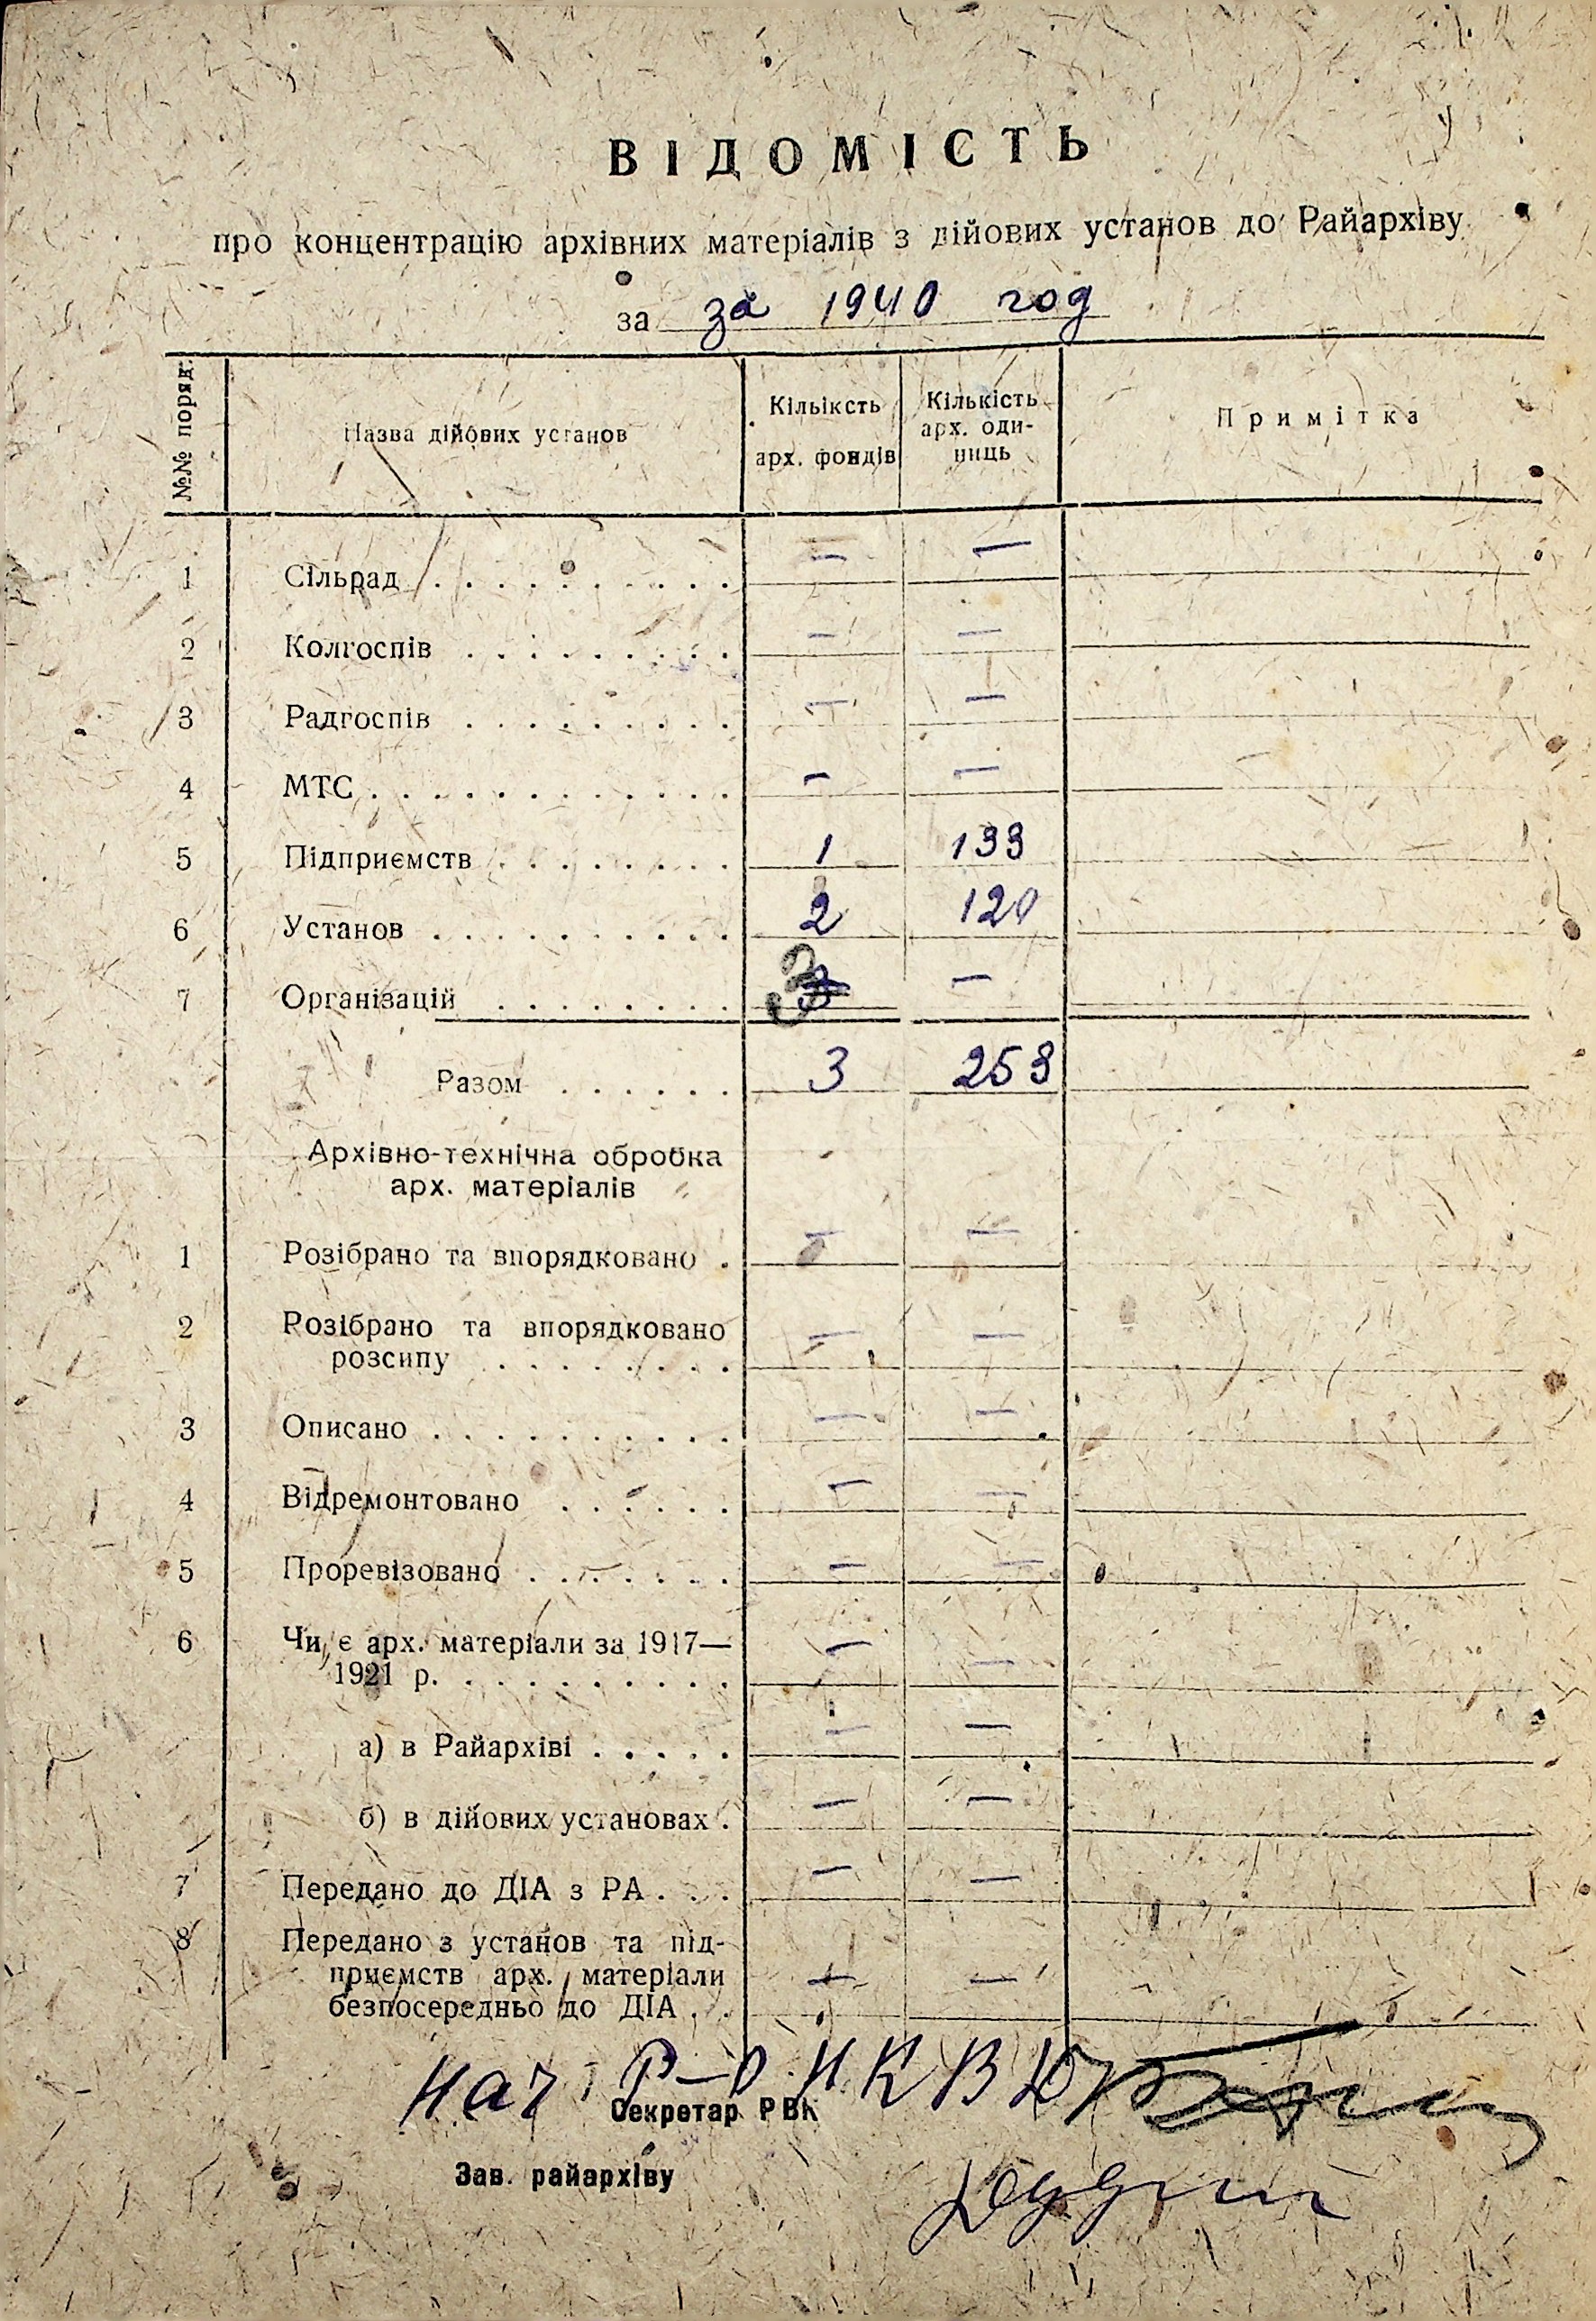 ВІДОМІСТЬ
про концентрацію архівних матеріалів з дійових установ до Райархіву
за за 1940 год
№№ поряд.
Назва дійових установ
Кільіксть
арх. фондів
Кількість
арх. оди-
ниць
Примітка
1 Сільрад . . . . . . . . . . — —
2 Колгоспів . . . . . . . . . — —
3 Радгоспів . . . . . . . . . — —
4 МТС . . . . . . . . . . . . — —
5 Підприємств . . . . . . . . 1 133
6 Установ . . . . . . . . . . 2 120
7 Організацій . . . . . . . . —
Разом . . . . . . 3 253
Архівно-технічна обробка
арх. матеріалів
1 Розібрано та впорядковано . — —
2 Розібрано та впорядковано
розсипу . . . . . . . . — —
3 Описано . . . . . . . . . . — —
4 Відремонтовано . . . . . . — —
5 Проревізовано . . . . . . . — —
6 Чи є арх. матеріали за 1917—
1921 р. . . . . . . . . . . — —
а) в Райархіві . . . . . — —
б) в дійових установах . — —
7 Передано до ДІА з РА . . . — —
8 Передано з установ та під-
приємств арх. матеріали
безпосередньо до ДІА . . — —
Нач Р-О НКВД
Секретар РВК
Зав. райархіву